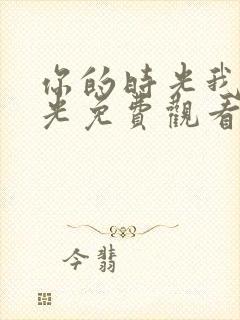 你的時光我
光免費觀看
今翡